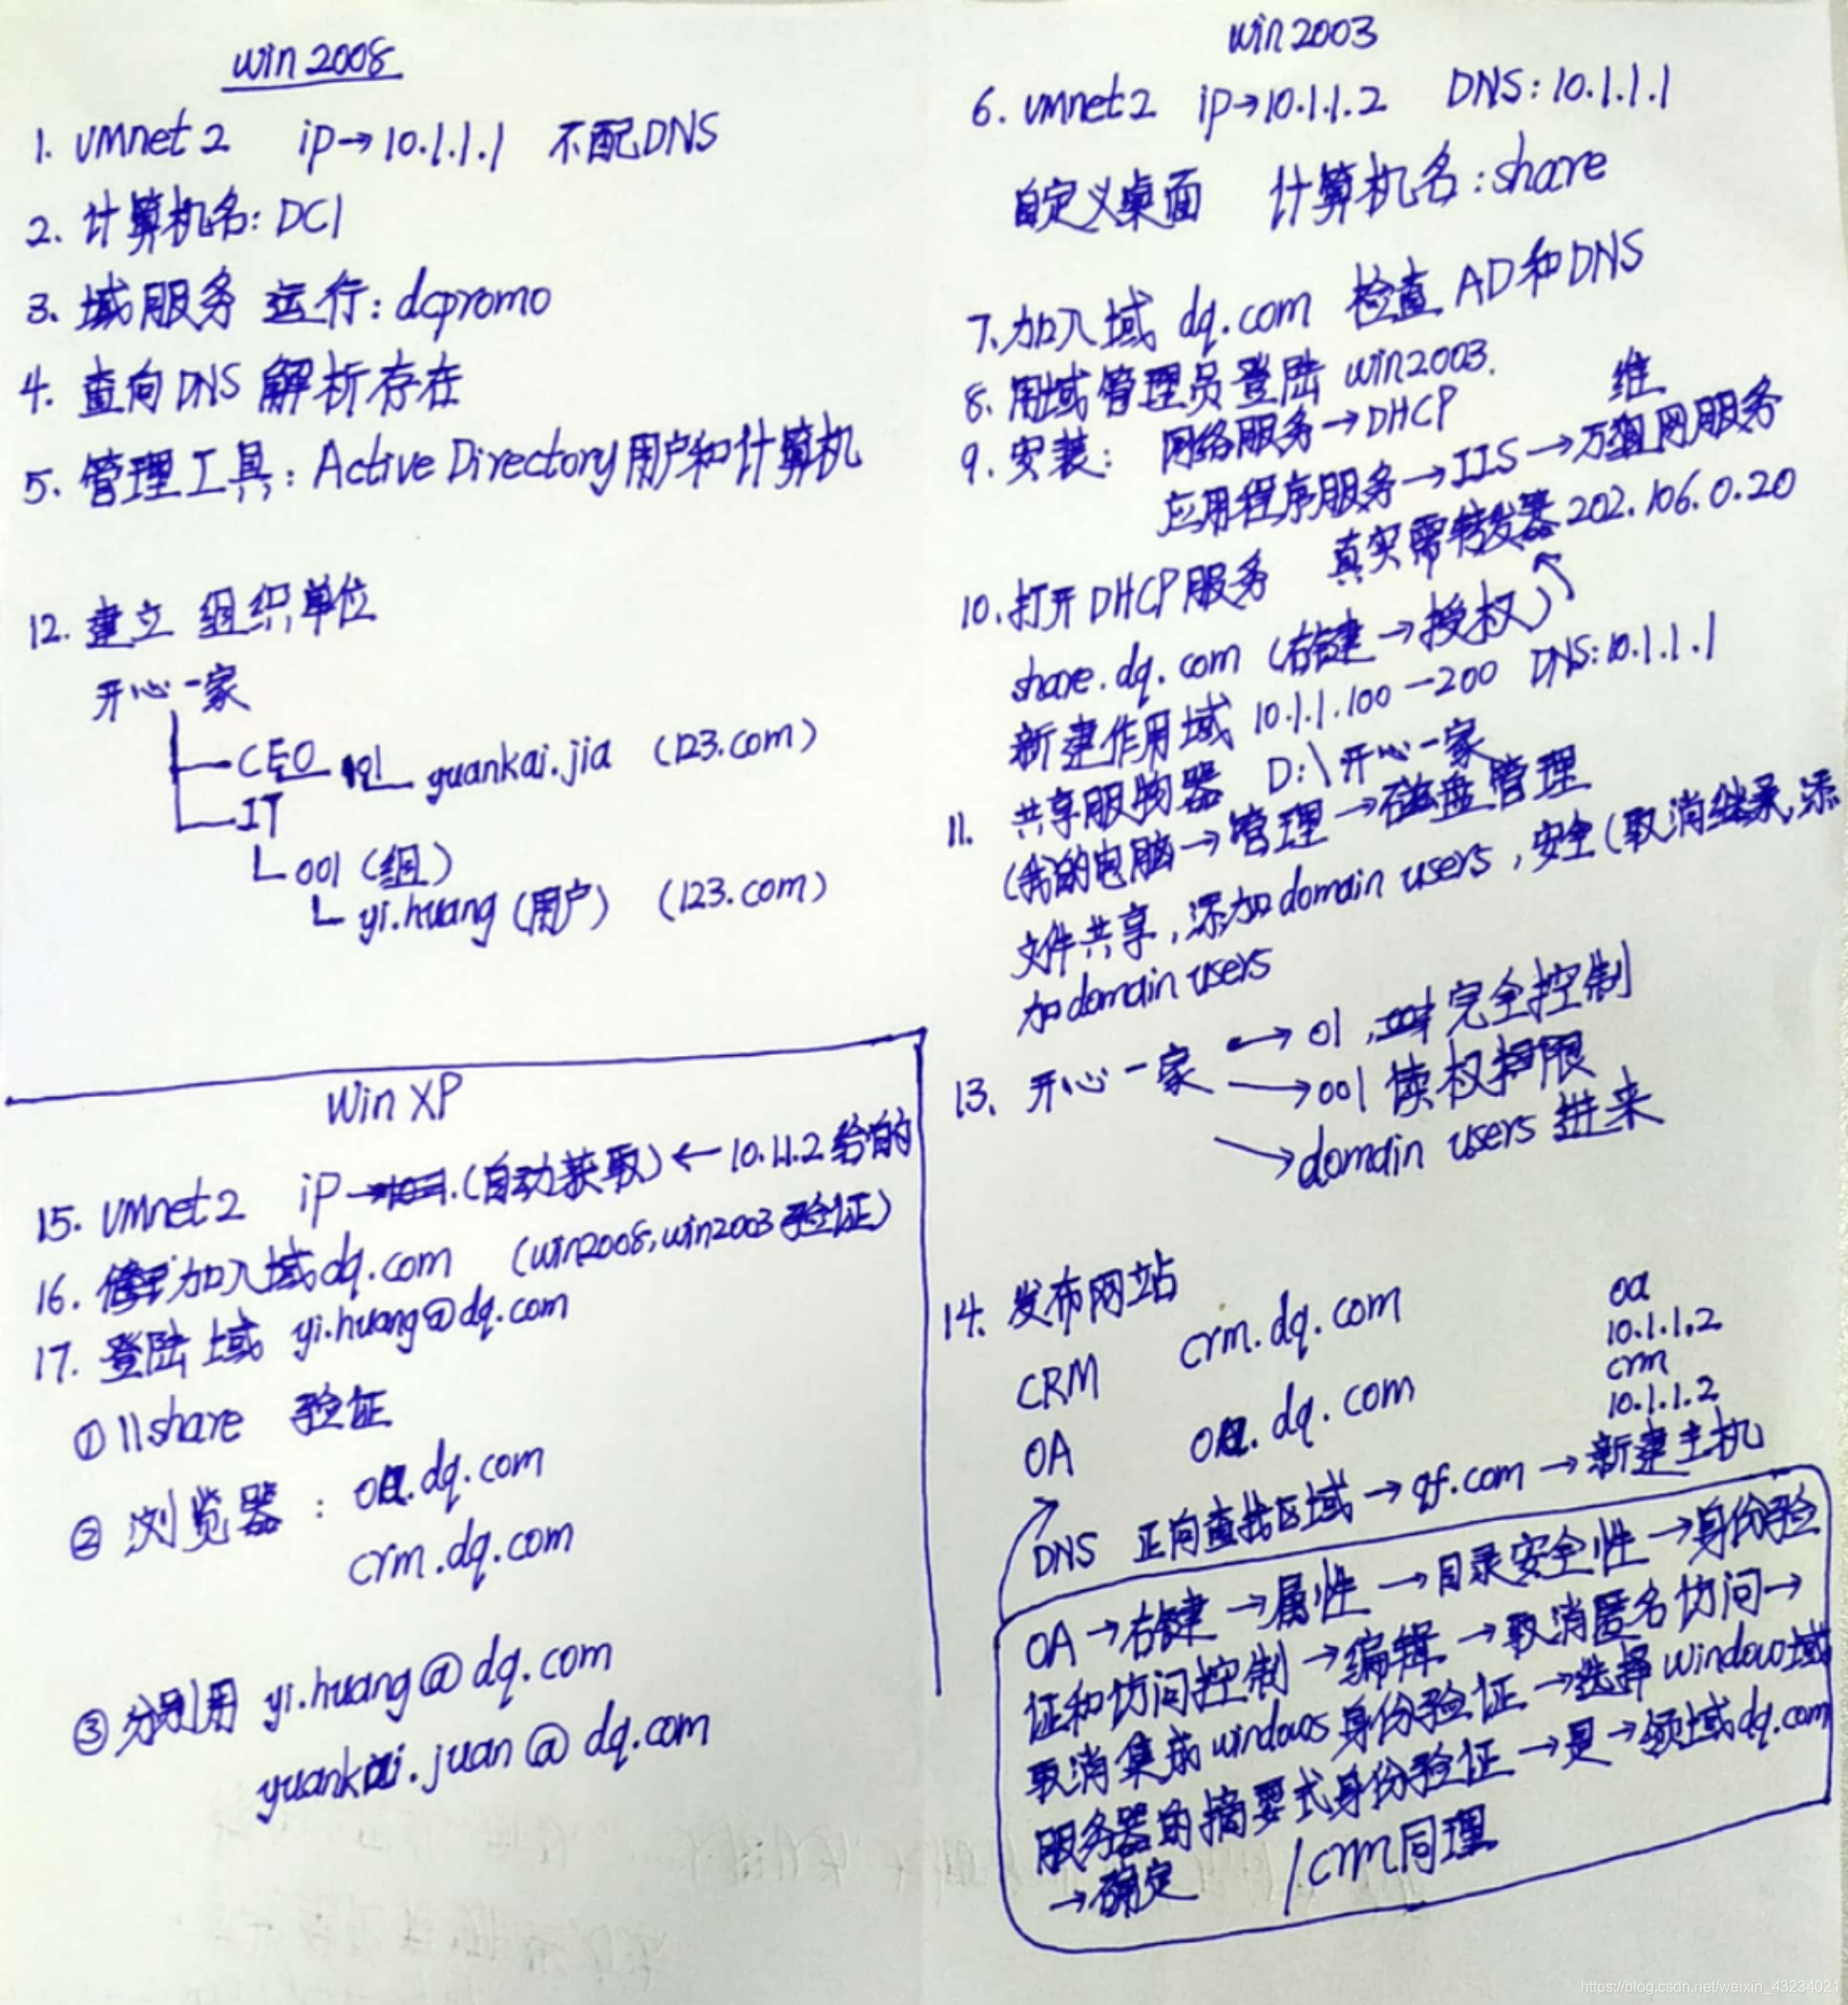 win 2008
1. vmnet 2 ip→10.1.1.1 不配DNS
2. 计算机名: DC1
3. 域服务 运行: dcpromo
4. 查向DNS 解析存在
5. 管理工具: Active Directory用户和计算机
12. 建立 组织单位
开心一家
CEO yuankai.jia (123.com)
IT
001 (组)
yi.huang (用户) (123.com)
Win XP
15. vmnet 2 ip (自动获取) ← 10.1.1.2 给的
16. 加入域dq.com (win2008, win2003 验证)
17. 登陆 域 yi.huang@dq.com
① \\share 验证
② 浏览器: oa.dq.com
crm.dq.com
③ 分别用 yi.huang@dq.com
yuankai.juan@dq.com
win 2003
6. vmnet 2 ip→10.1.1.2 DNS: 10.1.1.1
自定义桌面 计算机名: share
7. 加入域 dq.com 检查 AD和DNS
8. 用域管理员登陆 win2003.
9. 安装: 网络服务→DHCP
维
应用程序服务→IIS→万网服务
10. 打开DHCP服务 真实需转发器 202.106.0.20
share.dq.com (右键→授权)
新建作用域 10.1.1.100—200 DNS: 10.1.1.1
11. 共享服物器 D:\开心一家
(我的电脑→管理→磁盘管理
文件共享, 添加domain users, 安全(取消继承, 添
加domain users
13. 开心一家 → 01 完全控制
→ 001 读权限
→ domain users 进来
14. 发布网站
CRM crm.dq.com
OA oa.dq.com
oa
10.1.1.2
crm
10.1.1.2
DNS 正向查找区域→qf.com→新建主机
OA→右键→属性→目录安全性→身份验
证和访问控制→编辑→取消匿名访问→
取消集成windows身份验证→选择windows域
服务器的摘要式身份验证→是→领域dq.com
→确定 / crm同理
https://blog.csdn.net/weixin_43234021